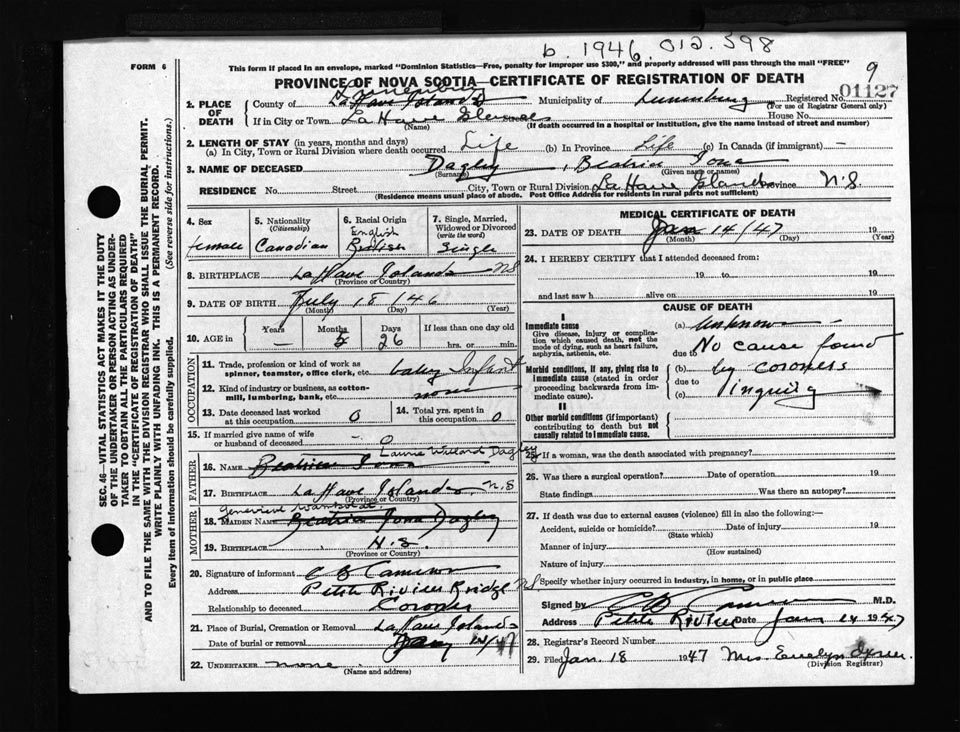 b. 1946. 012.398
FORM 6
This form if placed in an envelope, marked "Dominion Statistics—Free, penalty for improper use $300," and properly addressed will pass through the mail "FREE"
9
PROVINCE OF NOVA SCOTIA—CERTIFICATE OF REGISTRATION OF DEATH
01127
Lunenburg
1. PLACE OF DEATH
County of LaHave Islands Municipality of Lunenburg Registered No.
(For use of Registrar General only)
If in City or Town LaHave Islands House No.
(Name) (If death occurred in a hospital or institution, give the name instead of street and number)
2. LENGTH OF STAY (in years, months and days)
(a) In City, Town or Rural Division where death occurred Life (b) In Province Life (c) In Canada (if immigrant) —
3. NAME OF DECEASED Dagley, Beatrice Iona
(Surname) (Given name or names)
RESIDENCE No. Street City, Town or Rural Division LaHave Islands Province N.S.
(Residence means usual place of abode. Post Office Address for residents in rural parts not sufficient)
4. Sex
female
5. Nationality
(Citizenship)
Canadian
6. Racial Origin
English
British
7. Single, Married, Widowed or Divorced
(write the word)
Single
8. BIRTHPLACE LaHave Islands NS
(Province or Country)
9. DATE OF BIRTH July 18 / 46
(Month) (Day) (Year)
10. AGE in
Years Months Days If less than one day old
— 5 26 hrs. or min.
OCCUPATION
11. Trade, profession or kind of work as spinner, teamster, office clerk, etc. baby Infant
12. Kind of industry or business, as cotton-mill, lumbering, bank, etc. none
13. Date deceased last worked at this occupation 0
14. Total yrs. spent in this occupation 0
15. If married give name of wife or husband of deceased - 0
Laurie Willard Dagley
FATHER
16. NAME Beatrice Iona
17. BIRTHPLACE LaHave Islands N.S
(Province or Country)
Genevieve
MOTHER
18. MAIDEN NAME Beatrice Iona Dagley
19. BIRTHPLACE N.S.
(Province or Country)
20. Signature of informant C B Cameron
Address Petite Riviere Bridge NS
Relationship to deceased Coroner
21. Place of Burial, Cremation or Removal LaHave Islands
Date of burial or removal Jany /47
22. UNDERTAKER none
(Name and address)
MEDICAL CERTIFICATE OF DEATH
23. DATE OF DEATH Jan 14/47 19
(Month) (Day) (Year)
24. I HEREBY CERTIFY that I attended deceased from:
19 to 19
and last saw h alive on 19
CAUSE OF DEATH
I
Immediate cause
Give disease, injury or complication which caused death, not the mode of dying, such as heart failure, asphyxia, asthenia, etc.
Morbid conditions, if any, giving rise to immediate cause (stated in order proceeding backwards from immediate cause).
II
Other morbid conditions (if important) contributing to death but not causally related to immediate cause.
(a) Unknown
due to No cause found
(b) by coroners
due to
(c) inquiry
25. If a woman, was the death associated with pregnancy?
26. Was there a surgical operation? Date of operation 19
State findings Was there an autopsy?
27. If death was due to external causes (violence) fill in also the following:—
Accident, suicide or homicide? Date of injury 19
(State which)
Manner of injury
(How sustained)
Nature of injury
Specify whether injury occurred in industry, in home, or in public place
Signed by C B Cameron M.D.
Address Petite Riviere Date Jan 14 1947
28. Registrar's Record Number
29. Filed Jan. 18 1947 Mrs. Evelyn
(Division Registrar)
SEC. 46—VITAL STATISTICS ACT MAKES IT THE DUTY
OF THE UNDERTAKER OR PERSON ACTING AS UNDER-
TAKER TO OBTAIN ALL THE PARTICULARS REQUIRED
IN THE "CERTIFICATE OF REGISTRATION OF DEATH"
AND TO FILE THE SAME WITH THE DIVISION REGISTRAR WHO SHALL ISSUE THE BURIAL PERMIT.
WRITE PLAINLY WITH UNFADING INK. THIS IS A PERMANENT RECORD.
Every item of information should be carefully supplied. (See reverse side for instructions.)